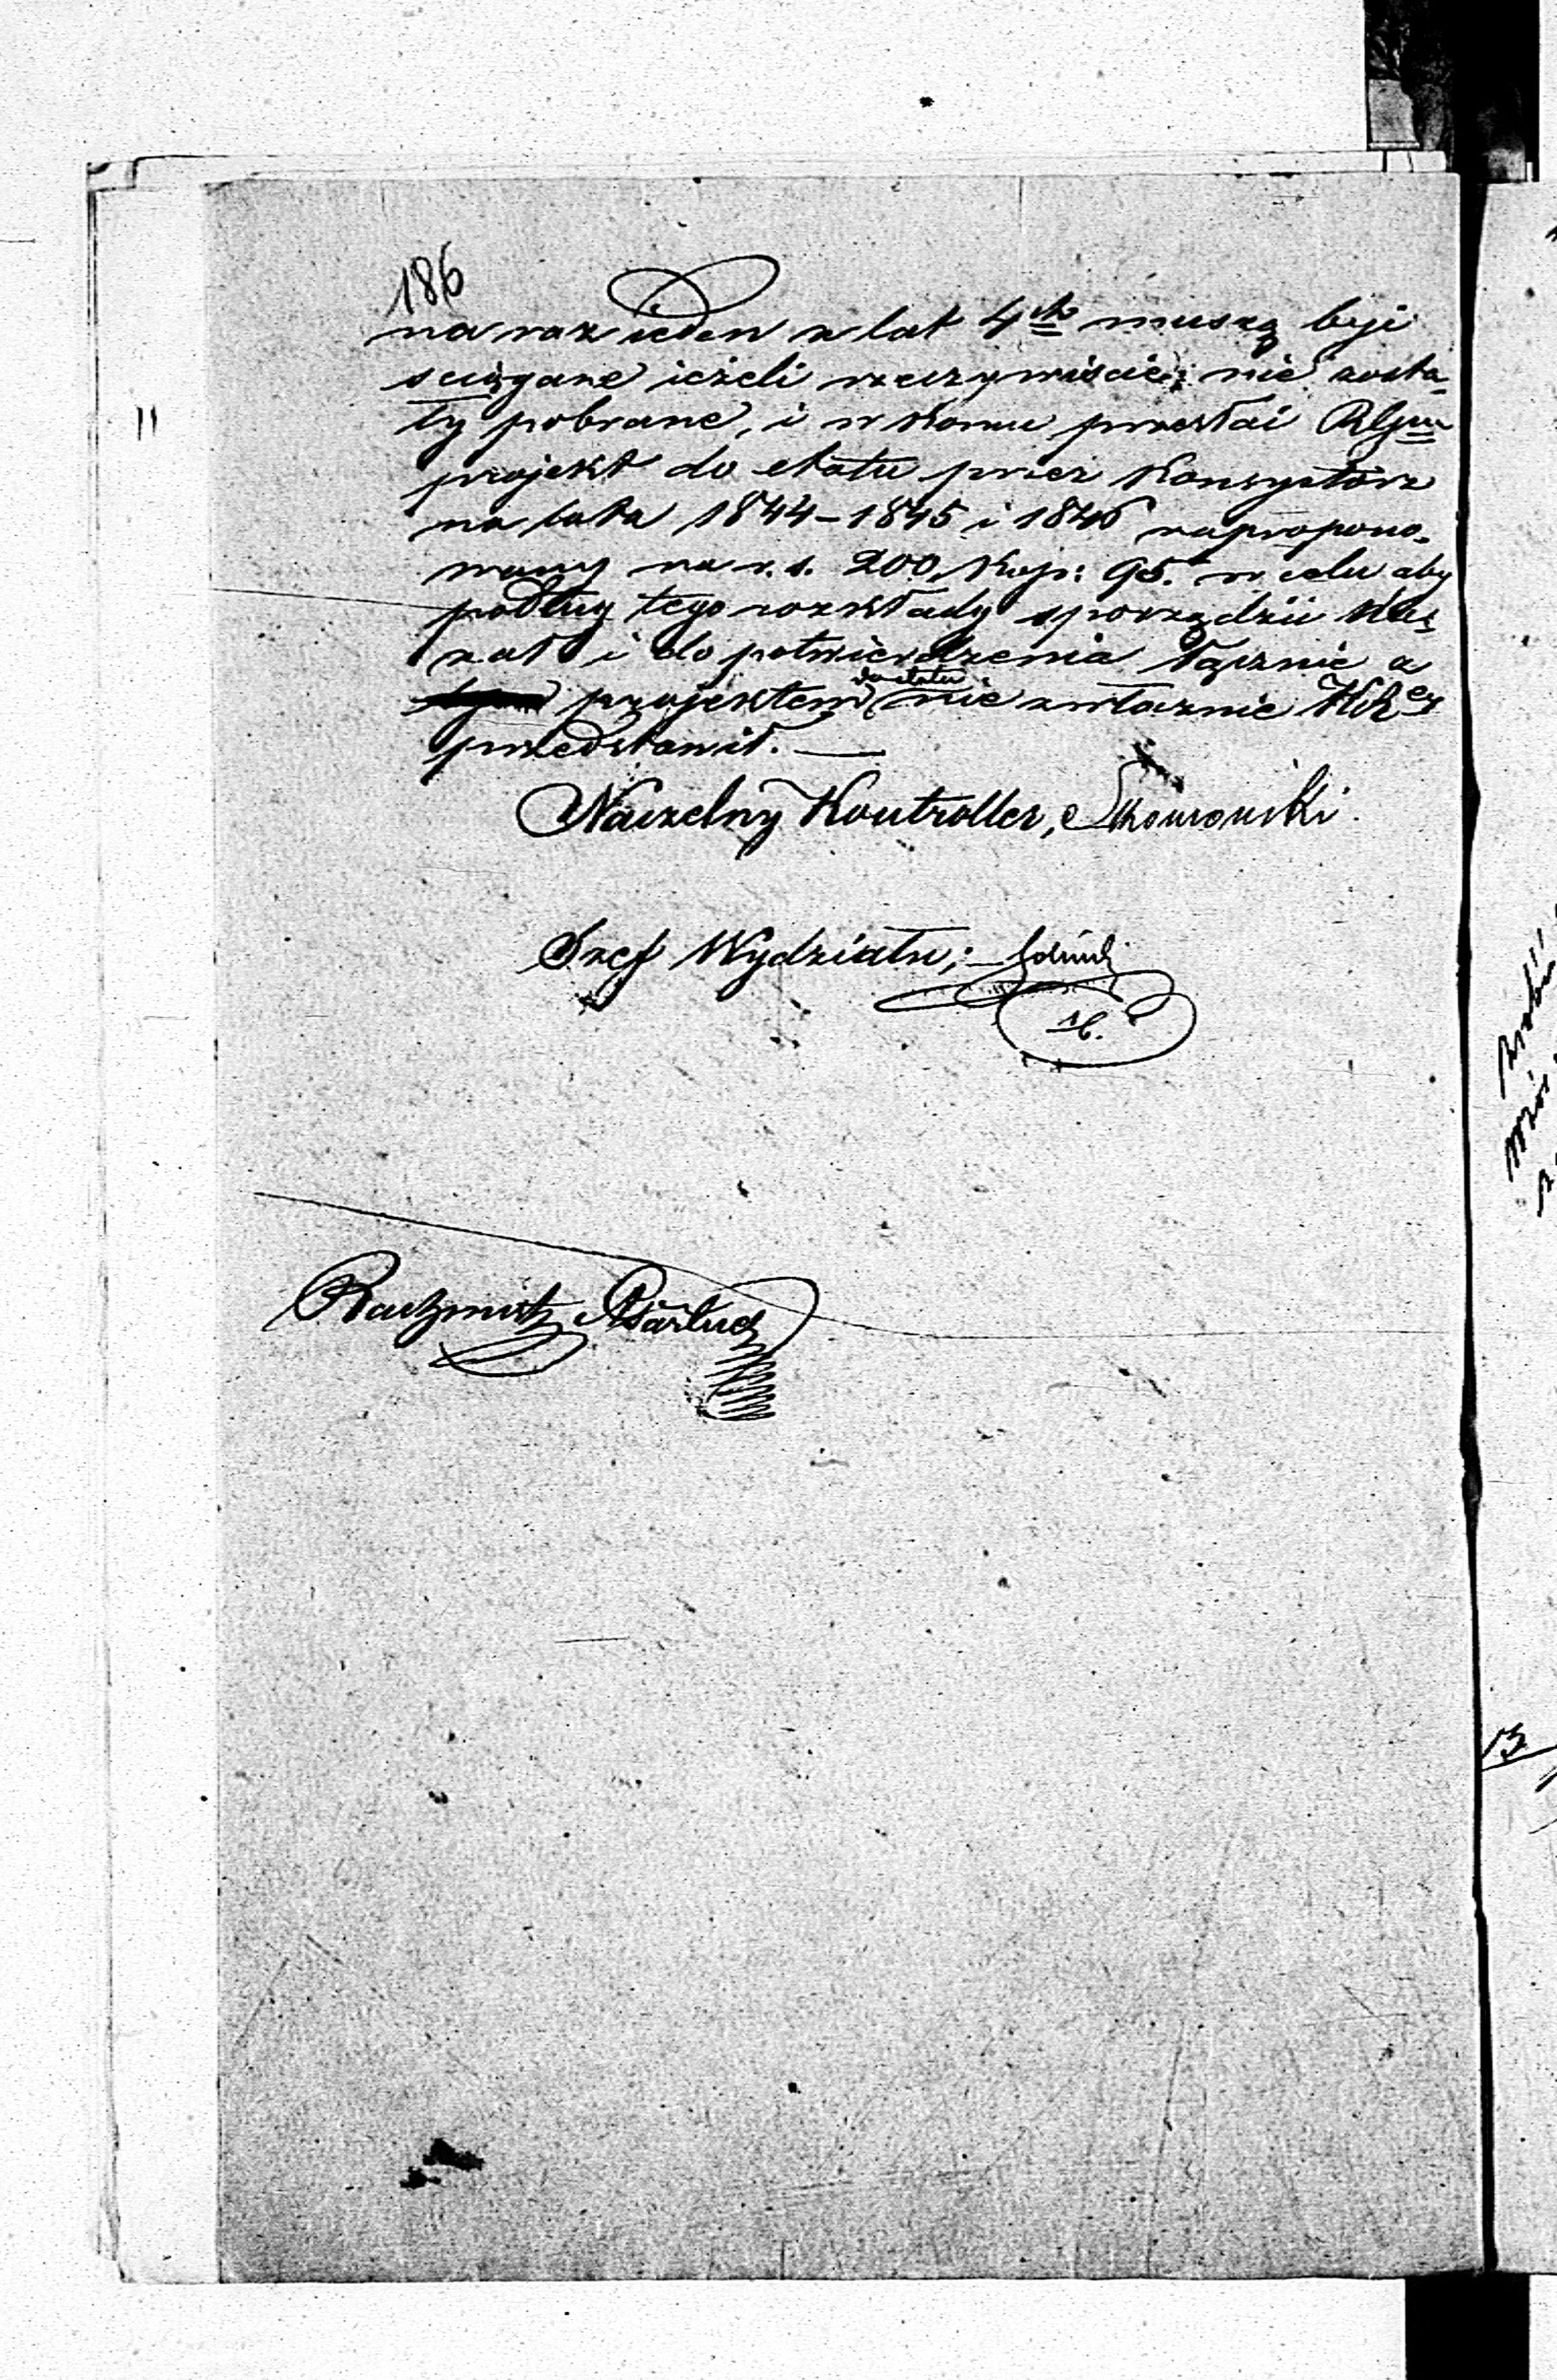 186
na raz ieden z lat 4ch muszą być
sciągane ieżeli rzeczywiście nie zosta-
ły pobrane, i w końcu przesłać
projekt do etatu przez Konsystorz
na lata 1844-1845 i 1846 zapropono-
wany na r. s. 200. kop: 95. w celu aby
podług tego rozkłady sporządzić
i do potwierdzenia łącznie z
projektem do etatu niezwłocznie
przedstawił. —
Naczelny Kontroller, Skowroński.
Szef Wydziału;
11
13